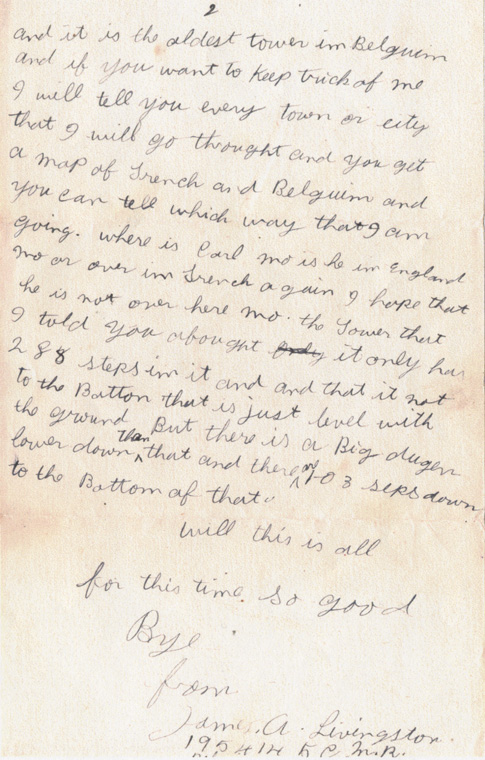 2
and it is the oldest tower im Belguim
and if you want to keep trick of me
I will tell you every town or city
that I will go thought and you get
a map of French and Belguim and
you can tell which way that I am
going. where is Carl mo is he im England
mo or over im French again I hope that
he is not over here mo. the Tower that
I told you abought only it only has
288 steps im it and and that it not
to the Bottom that is just level with
the ground But there is a Big dugen
lower down than that and there is 103 seps down
to the Bottom of that.
Will this is all
for this time so good
Bye
from
James. A. Livingston.
195414 5 C.M.R.